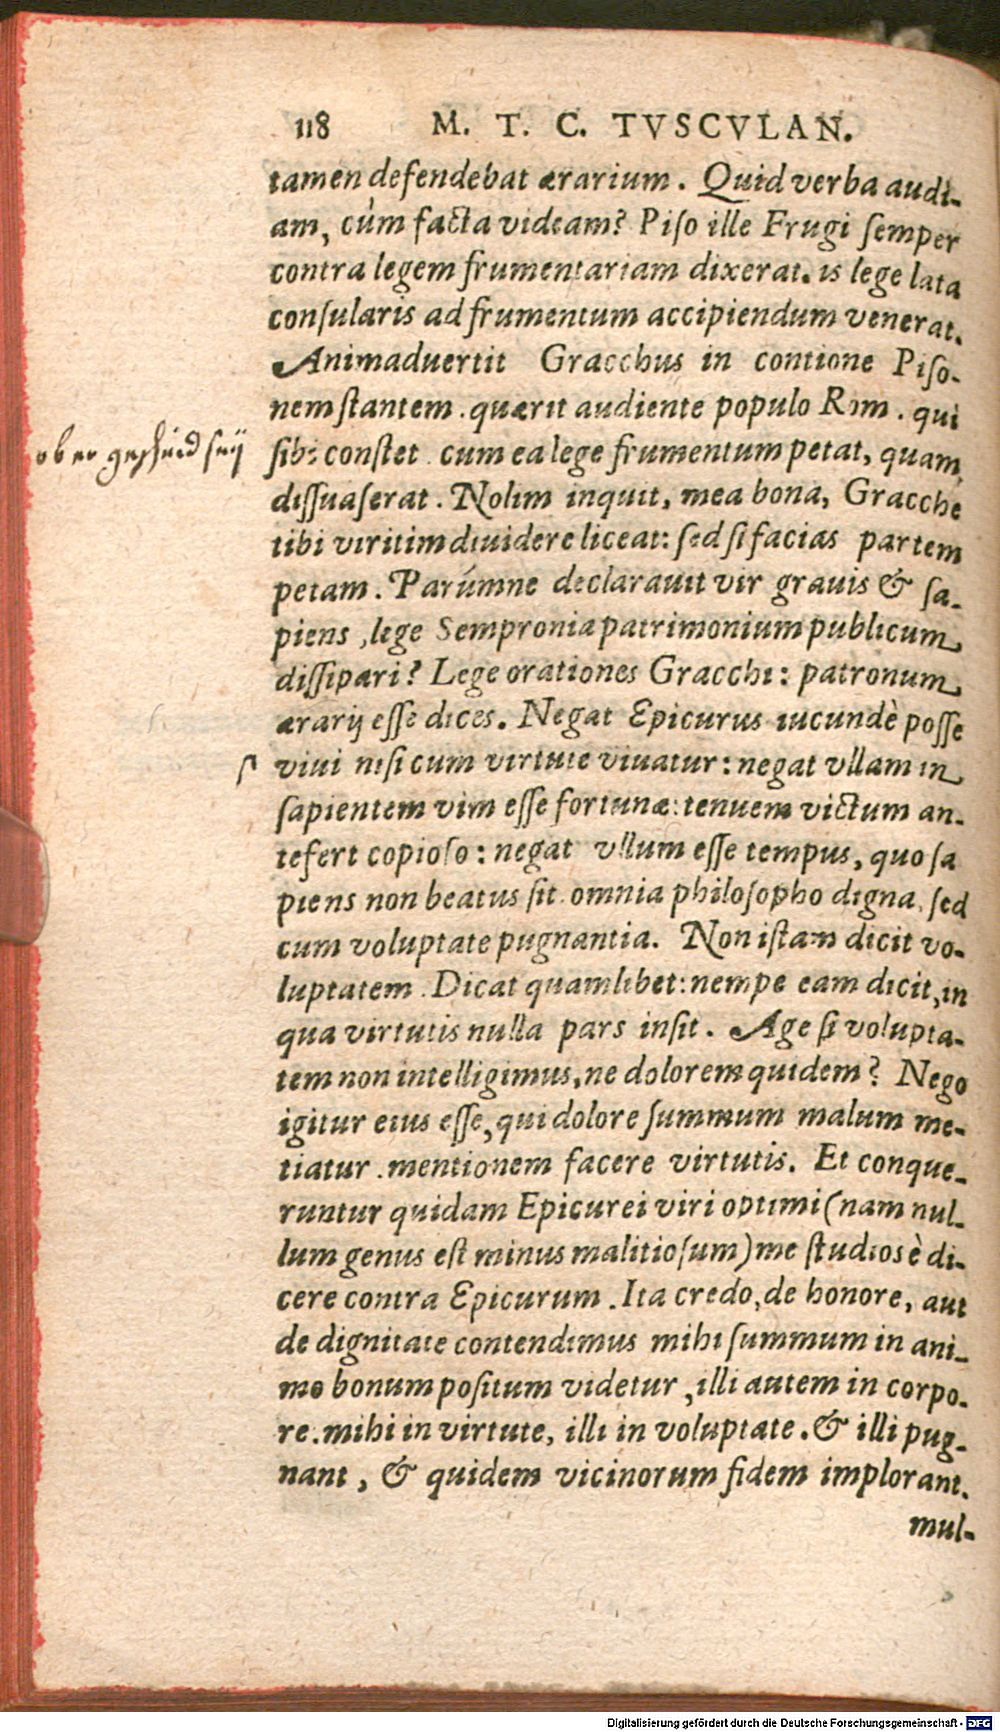 118 M. T. C. TVSCVLAN.
tamen defendebat ærarium. Quid verba audi-
am, cùm facta videam? Piso ille Frugi semper
contra legem frumentariam dixerat. is lege lata
consularis ad frumentum accipiendum venerat.
Animaduertit Gracchus in contione Piso-
nem stantem. quærit audiente populo Rom. qui
sibi constet cum ea lege frumentum petat, quam
dissuaserat. Nolim inquit, mea bona, Gracche
tibi viritim diuidere liceat: sed si facias partem
petam. Parúmne declarauit vir grauis & sa-
piens, lege Sempronia patrimonium publicum
dissipari? Lege orationes Gracchi: patronum
ærarij esse dices. Negat Epicurus iucundè posse
viui nisi cum virtute viuatur: negat vllam in
sapientem vim esse fortunæ: tenuem victum an-
tefert copioso: negat vllum esse tempus, quo sa
piens non beatus sit. omnia philosopho digna, sed
cum voluptate pugnantia. Non istam dicit vo-
luptatem. Dicat quamlibet: nempe eam dicit, in
qua virtutis nulla pars insit. Age si volupta-
tem non intelligimus, ne dolorem quidem? Nego
igitur eius esse, qui dolore summum malum me-
tiatur. mentionem facere virtutis. Et conque-
runtur quidam Epicurei viri optimi (nam nul-
lum genus est minus malitiosum) me studiosè di-
cere contra Epicurum. Ita credo, de honore, aut
de dignitate contendimus mihi summum in ani-
mo bonum positum videtur, illi autem in corpo-
re. mihi in virtute, illi in voluptate. & illi pug-
nant, & quidem vicinorum fidem implorant.
mul-
Digitalisierung gefördert durch die Deutsche Forschungsgemeinschaft - DFG